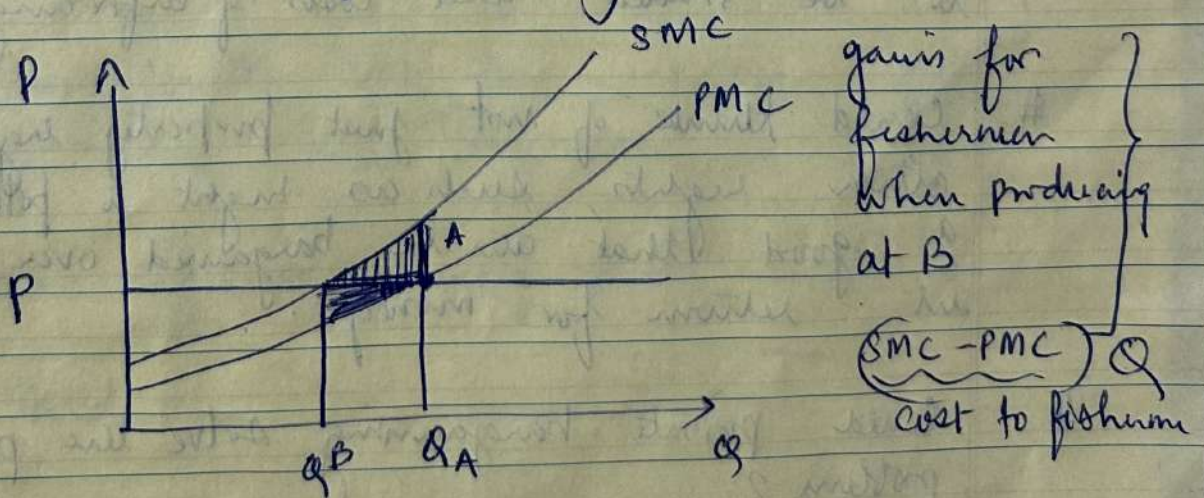 SMC
P
PMC
A
P
Q^B
Q_A
Q
gains for
fishermen
when producing
at B
(SMC - PMC) Q
cost to fishermen